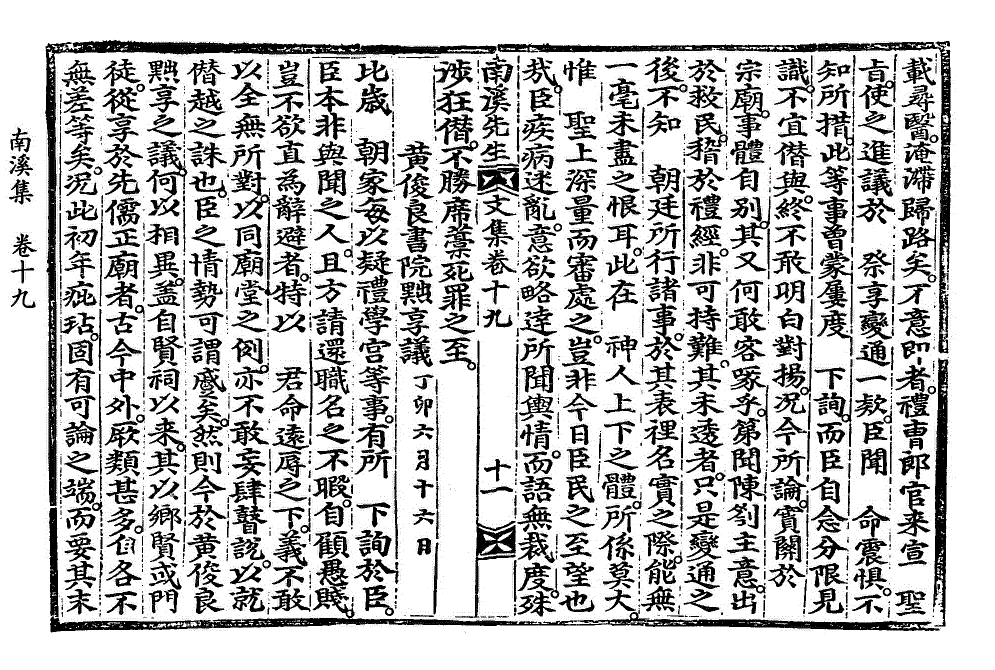 載尋醫。淹滯歸路矣。不意卽者。禮曹郞官來宣　聖
旨。使之進議於　祭享變通一款。臣聞　命震惧。不
知所措。此等事曾蒙屢度　下詢。而臣自念分限見
識。不宜僭與。終不敢明白對揚。況今所論。實關於
宗廟。事體自別。其又何敢容喙乎。第聞陳箚主意。出
於救民。稽於禮經。非可持難。其未透者。只是變通之
後。不知　朝廷所行諸事。於其表裡名實之際。能無
一毫未盡之恨耳。此在　神人上下之體。所係莫大。
惟　聖上深量而審處之。豈非今日臣民之至望也
哉。臣疾病迷亂。意欲略達所聞輿情。而語無裁度。殊
南溪先生文集卷十九　十一
涉狂僭。不勝席藁死罪之至。
黃俊良書院黜享議 丁卯六月十六日
比歲　朝家每以疑禮學宮等事。有所　下詢於臣。
臣本非與聞之人。且方請還職名之不暇。自顧愚賤。
豈不欲直爲辭避者。特以　君命遠辱之下。義不敢
以全無所對。以同廟堂之例。亦不敢妄肆瞽說。以就
僭越之誅也。臣之情勢可謂慼矣。然則今於黃俊良
黜享之議。何以相異。盖自賢祠以來。其以鄕賢或門
徒。從享於先儒正廟者。古今中外。厥類甚多。自各不
無差等矣。況此初年疵玷。固有可論之端。而要其末
南溪集　卷十九